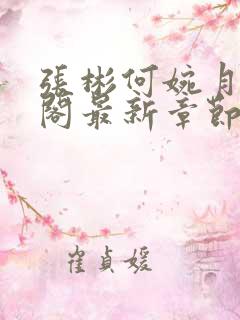 張彬何婉月
閣最新章節
崔貞媛